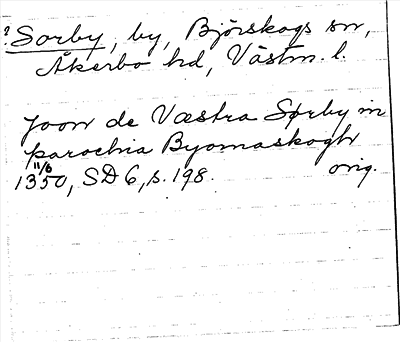 ? Sörby, by, Björskogs sn,
Åkerbo hd, Västm. l.
Joon de Væstra Sørby in
parochia Byornaskoghr
11/6
1350, SD 6, s. 198. orig.